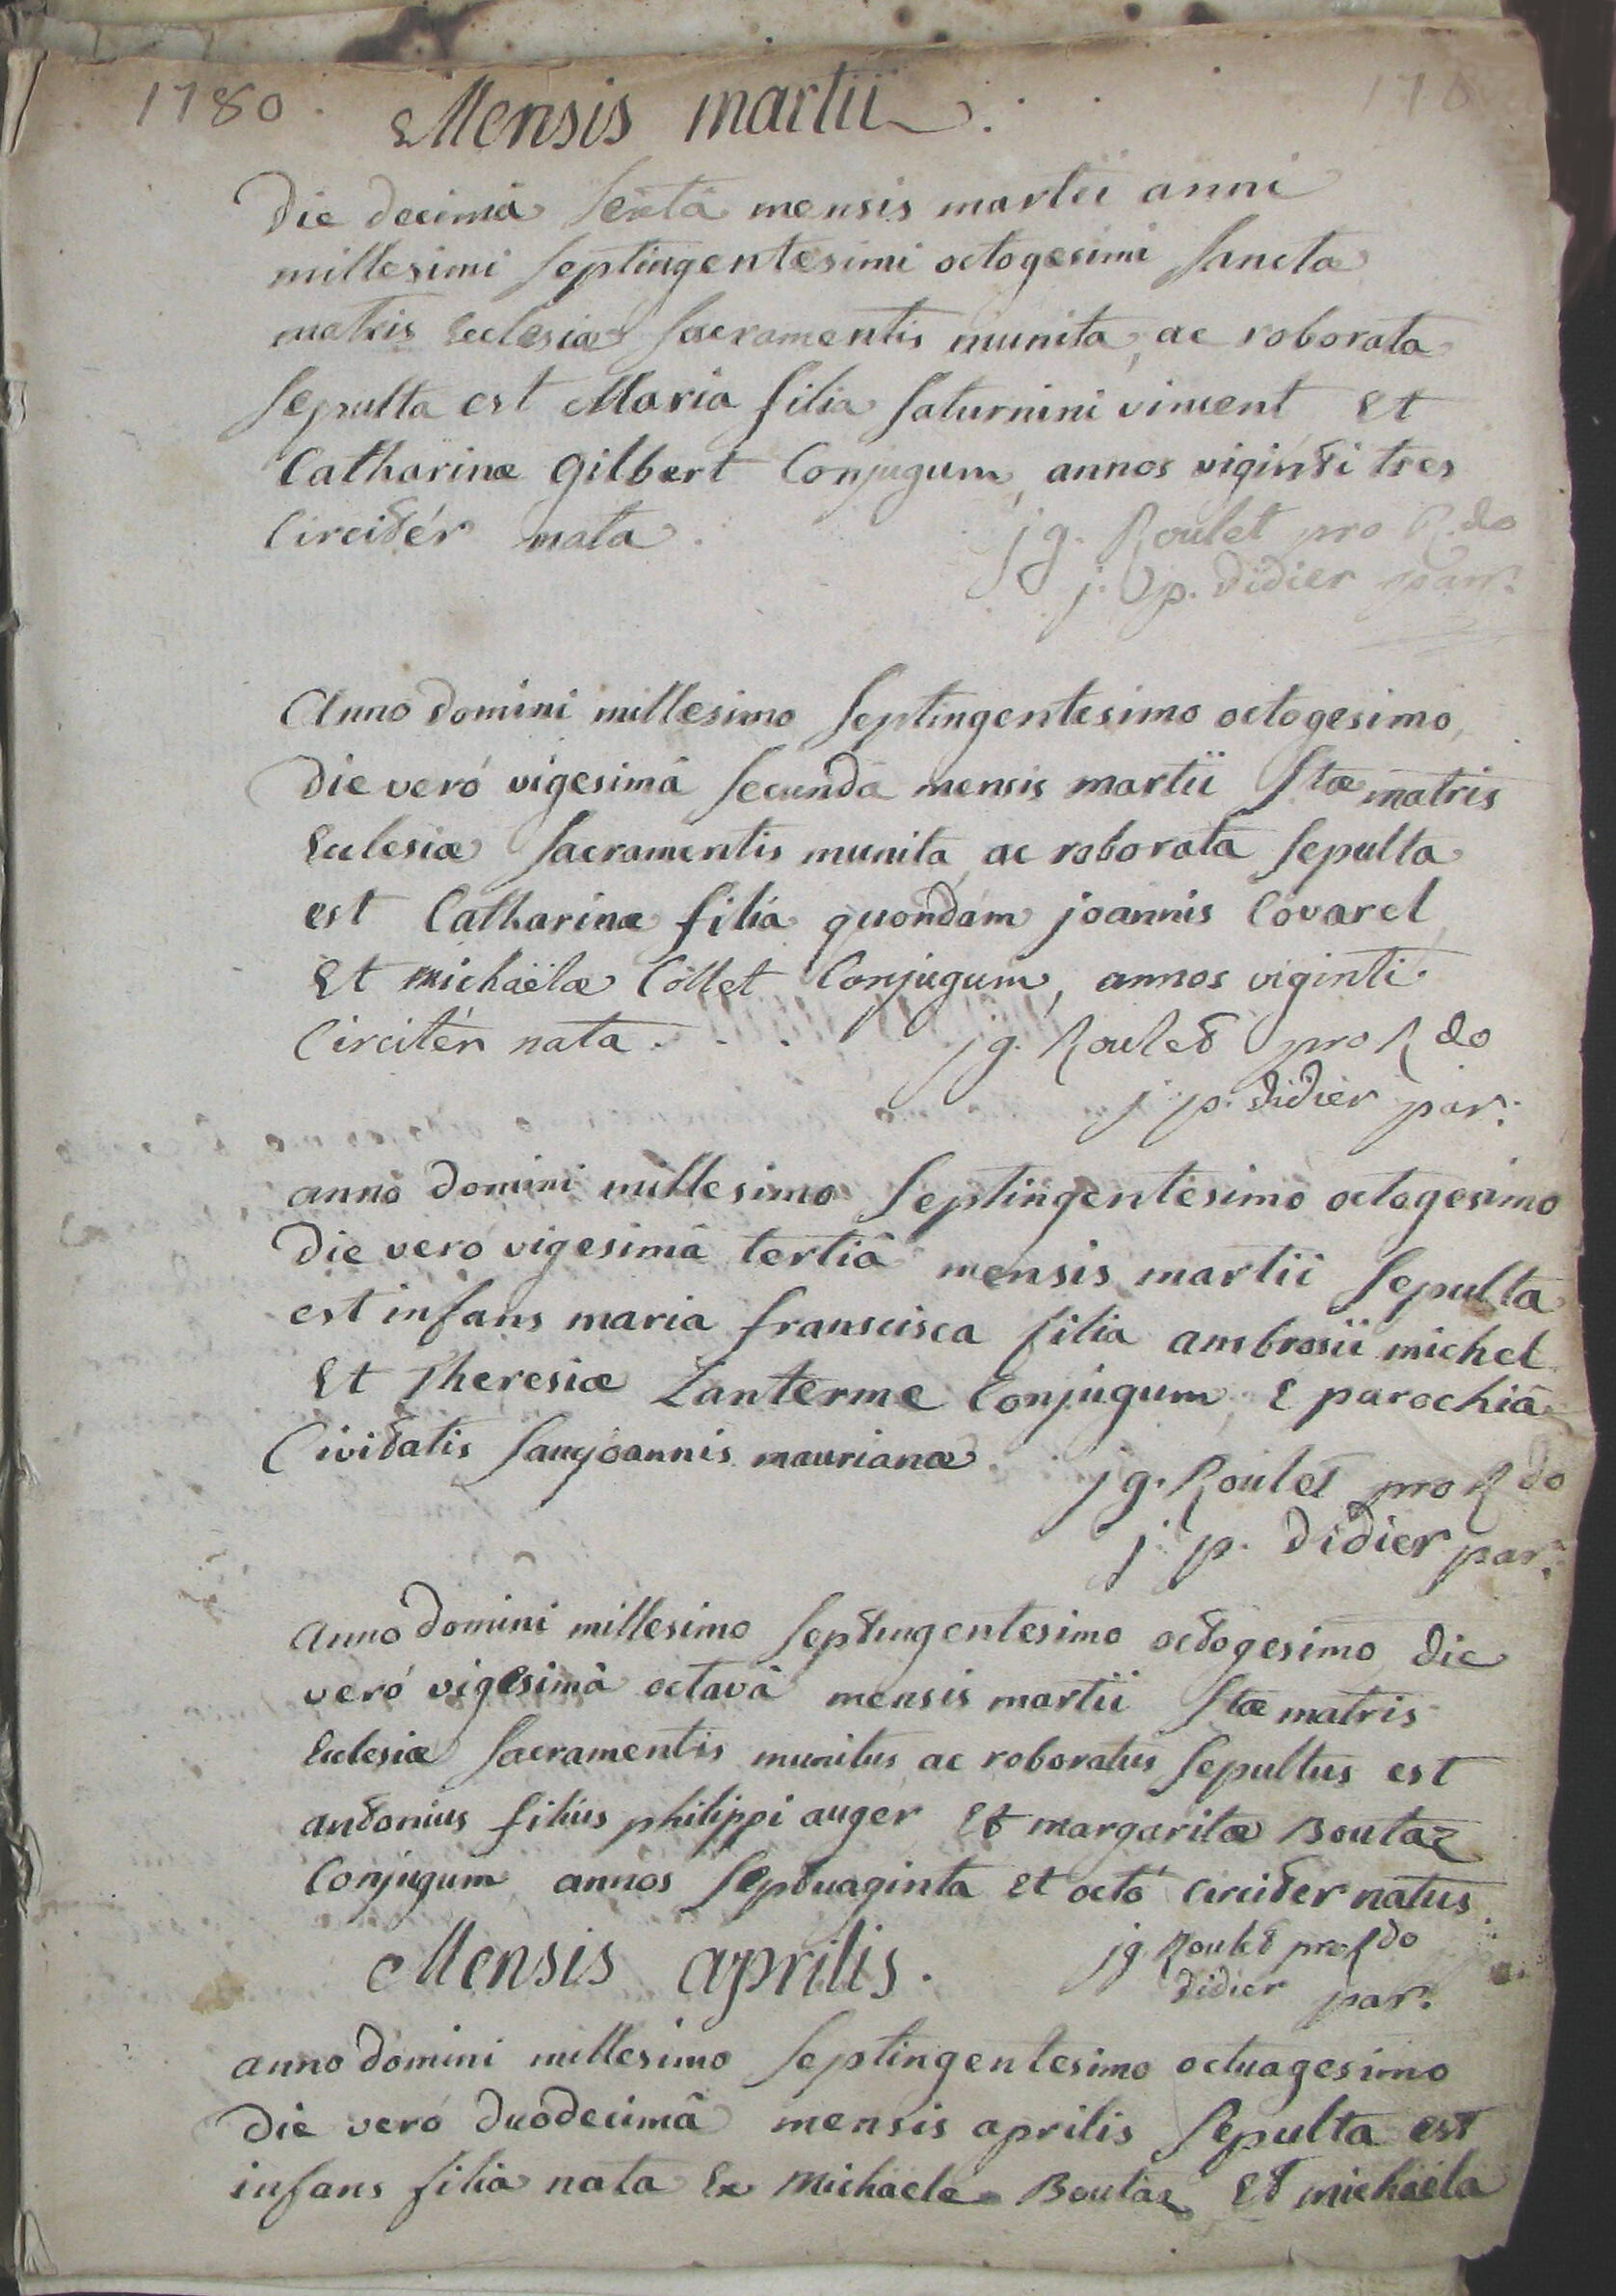 1780. Mensis martii. 178
Die decimâ sextâ mensis martii anni
millesimi septingentesimi octogesimi sanctæ
matris Ecclesiæ sacramentis munita, ac roborata
sepulta est Maria filia saturnini vincent et
Catharinæ gilbert Conjugum, annos viginti tres
Circitér nata.
jg. Roulet pro R.do
j. p. didier parr.
Anno domini millesimo septingentesimo octogesimo,
die veró vigesimâ secundâ mensis martii stæ matris
Ecclesiæ sacramentis munita, ac roborata sepulta
est Catharina filia quondam joannis Covarel
Et michaëlæ Collet Conjugum, annos viginti
Circitér nata. . . .
jg. Roulet pro R do
j p. didier par:
anno domini millesimo septingentesimo octogesimo
die vero vigesimâ tertiâ mensis martii sepulta
est infans maria franscisca filia ambrosii michel
Et Theresiæ Lanterme Conjugum, E parochiâ
Civitatis sancjoannis maurianæ.
jg. Roulet pro R do
j. p. didier par:
anno domini millesimo septingentesimo octogesimo, die
veró vigesimâ octavâ mensis martii stæ matris
Ecclesiæ sacramentis munitus ac roboratus sepultus est
antonius filius philippi auger Et margaritæ Boutaz
Conjugum annos septuaginta et octo circiter natus
jg Roulet pro R do
didier par.
Mensis aprilis.
anno domini millesimo septingentesimo octuagesimo
die veró duodecimâ mensis aprilis sepulta est
infans filia nata Ex Michaele Boutaz Et michaela